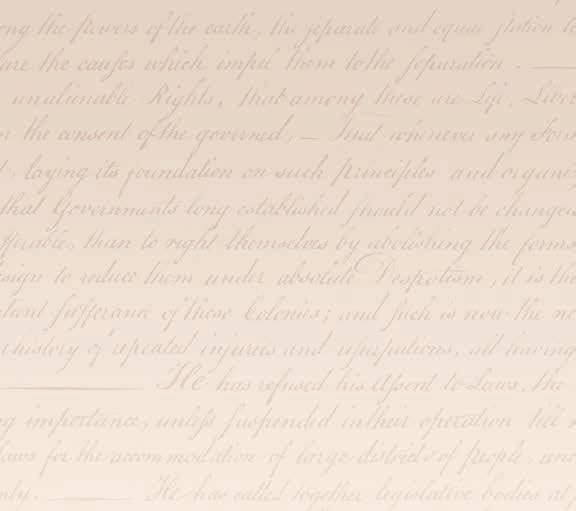 ong the powers of the earth, the separate and equal station to
are the causes which impel them to the separation . —
unalienable Rights, that among these are Life, Liber
n the consent of the governed, — That whenever any Form
t, laying its foundation on such principles and organiz
that Governments long established should not be changed
fferable, than to right themselves by abolishing the forms
esign to reduce them under absolute Despotism, it is the
tient sufferance of these Colonies; and such is now the ne
history of repeated injuries and usurpations, all having
— He has refused his Assent to Laws, the
ng importance, unless suspended in their operation till
laws for the accommodation of large districts of people, un
nly. — He has called together legislative bodies at p